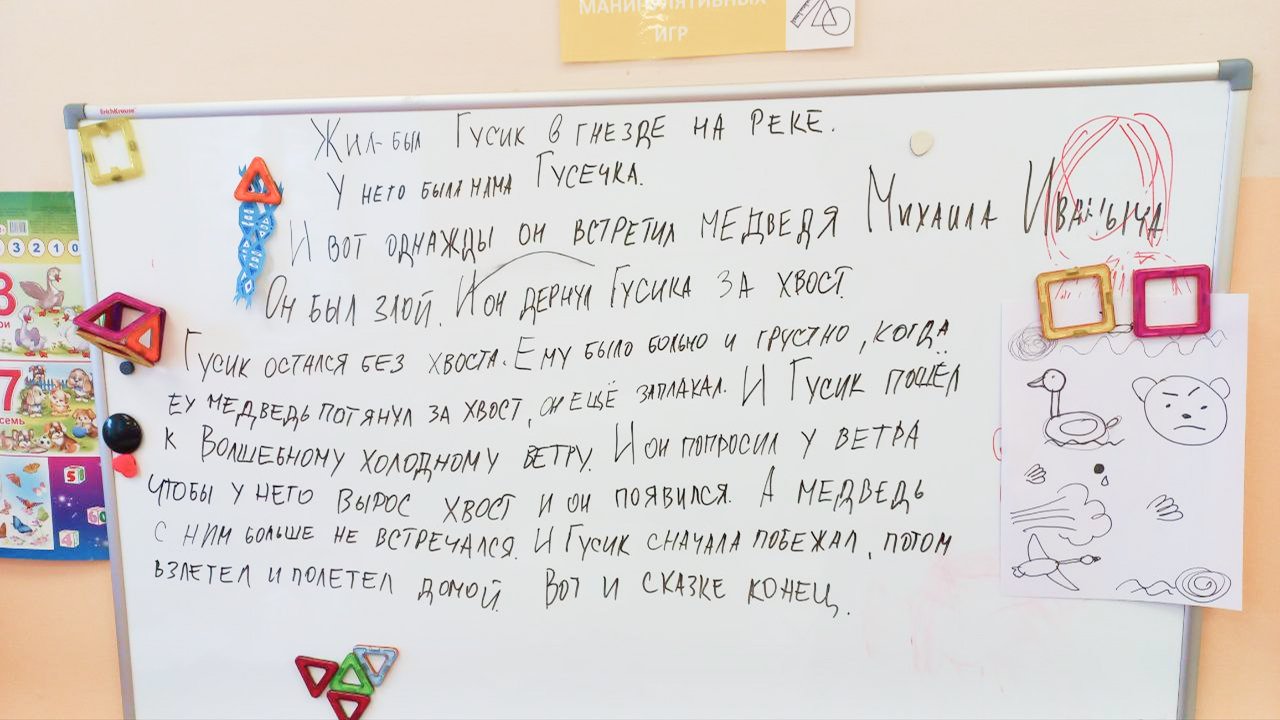 МАНИПУЛЯТИВНЫХ
ИГР
ErichKrause
Жил-был Гусик в гнезде на реке.
У него была мама Гусечка.
И вот однажды он встретил медведя Михаила Иваныча
Он был злой. И он дернул Гусика за хвост.
Гусик остался без хвоста. Ему было больно и грустно, когда
еу медведь потянул за хвост, он ещё заплакал. И Гусик пошёл
к Волшебному холодному ветру. И он попросил у ветра
чтобы у него вырос хвост и он появился. А медведь
с ним больше не встречался. И Гусик сначала побежал, потом
взлетел и полетел домой. Вот и сказке конец.
3 2 1 0
8
7
семь
5
6
4